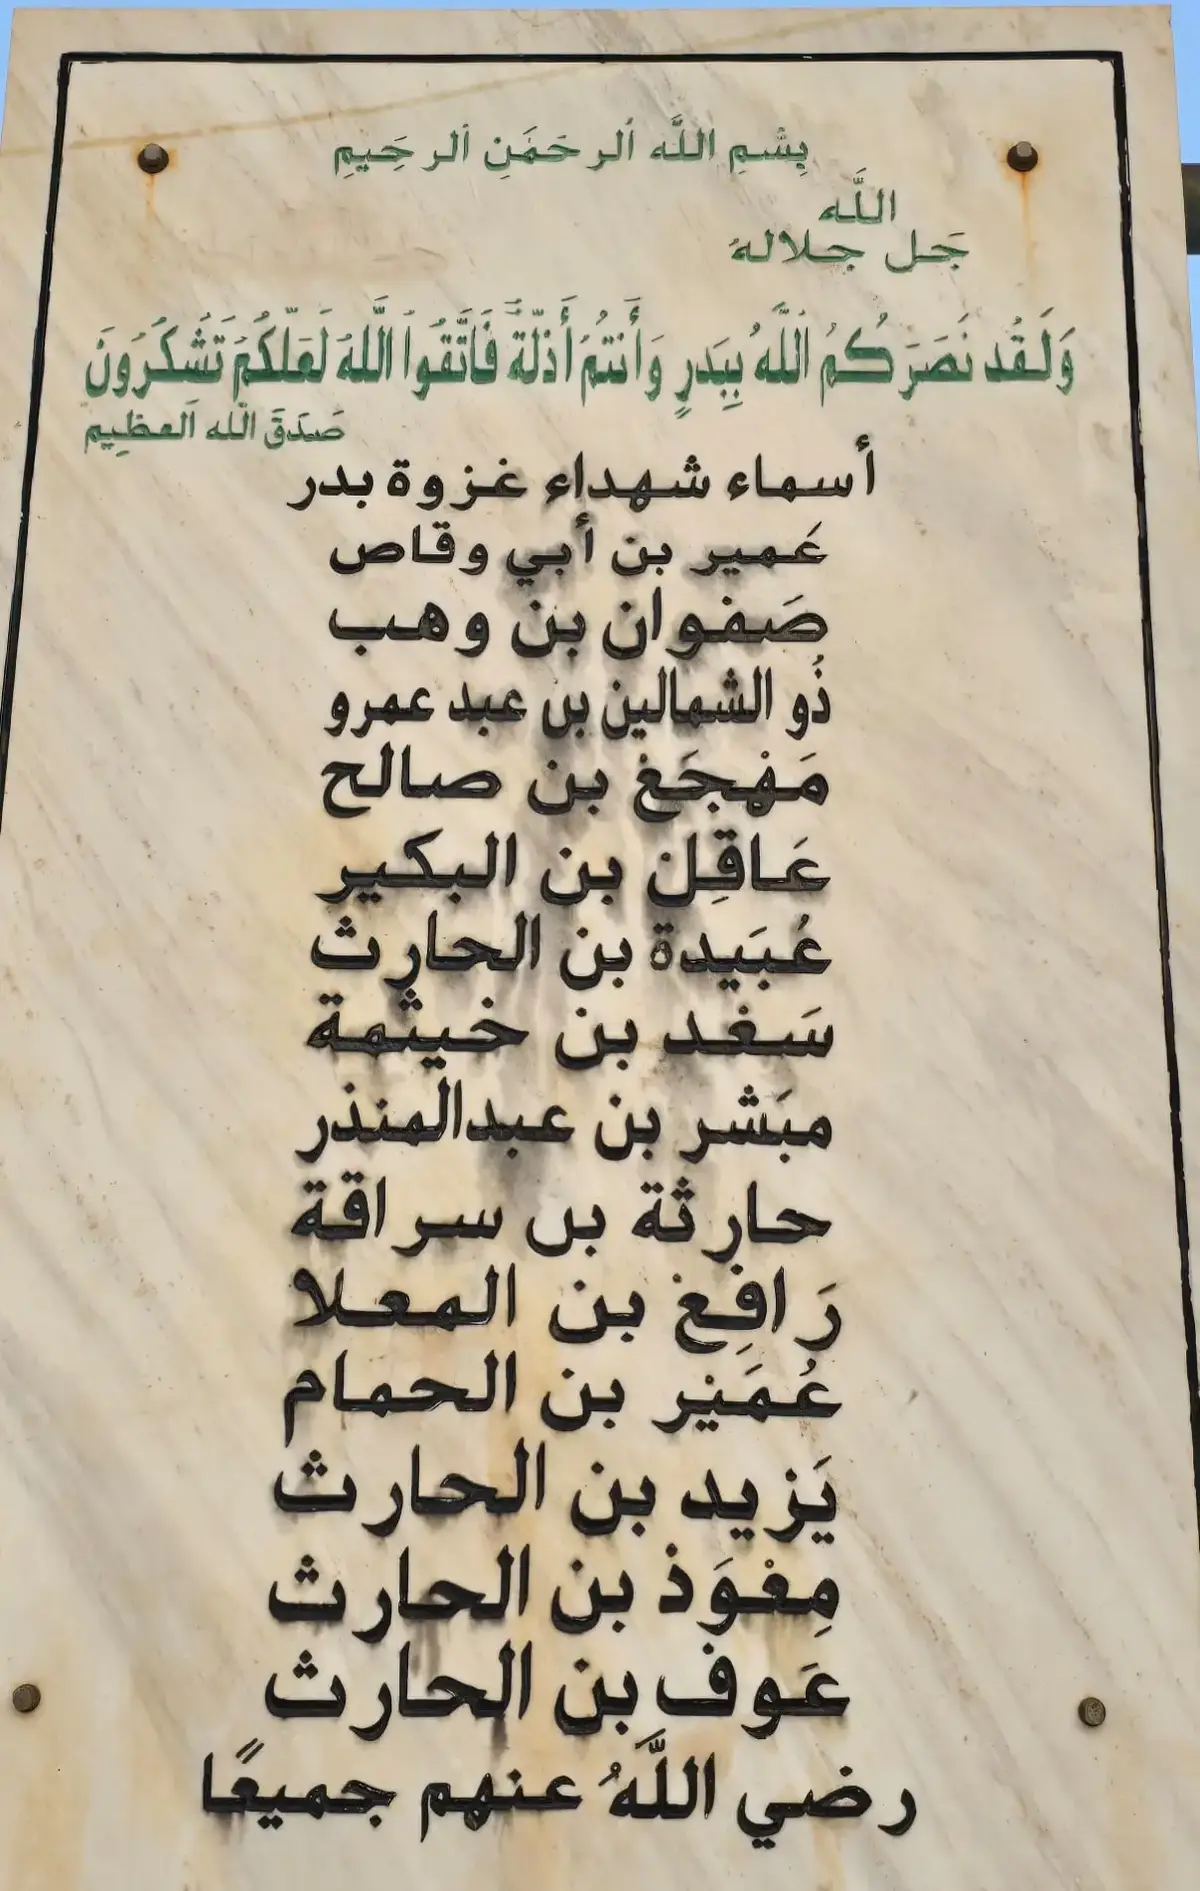 بِسْمِ اللَّه ٱلرحَمَٰنِ ٱلرحَيمِ
اللَّه
جَل جلالهُ
وَلَقَدْ نَصَرَكُمُ اللَّهُ بِبَدرٍ وَأَنتُمْ أَذِلَّةٌ فَاتَّقُوا اللَّهَ لَعَلَّكُمْ تَشْكُرُونَ
صَدَقَ اللّه العظِيم
أسماء شهداء غزوة بدر
عَمير بن أبي وقاص
صَفوان بن وهب
ذُو الشمالين بن عبد عمرو
مَهْجَعْ بن صالح
عَاقِل بن البكير
عُبَيدة بن الحارث
سَعْد بن خيثمة
مبَشر بن عبدالمنذر
حارثة بن سراقة
رَافِعْ بن المعلا
عُمَيْر بن الحمام
يَزيد بن الحارث
مِعْوَذ بن الحارث
عَوف بن الحارث
رضي اللَّهُ عنهم جميعًا